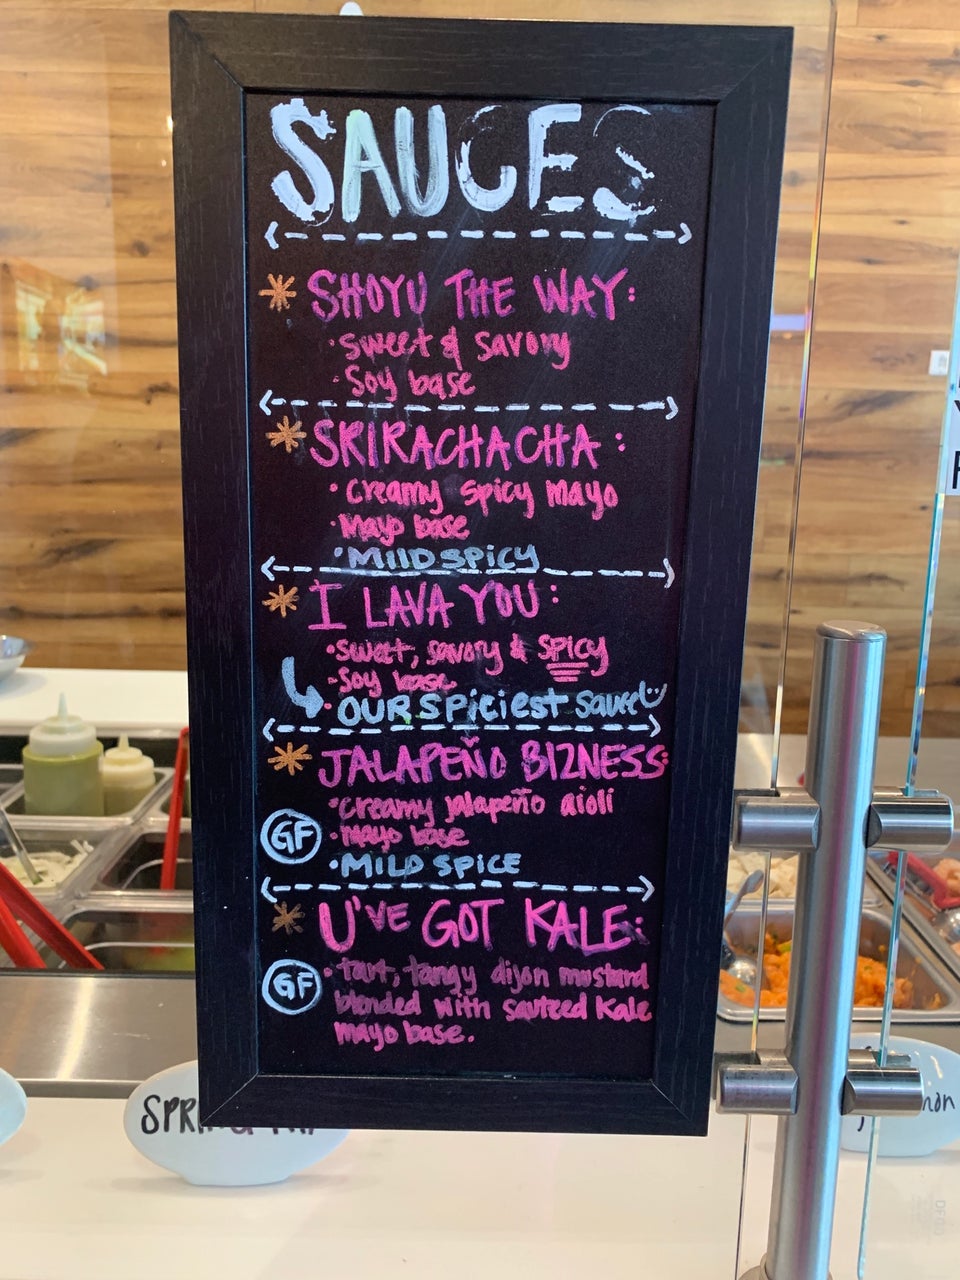 SAUCES
* SHOYU THE WAY:
• sweet & savory
• Soy base
* SRIRACHACHA:
• creamy spicy mayo
• Mayo base
• MIlD SPICY
* I LAVA YOU:
• sweet, savory & SPICY
• Soy base
• OUR SPICIEST SAUCE
* JALAPEÑO BIZNESS:
• creamy jalapeño aioli
GF • Mayo base
• MILD SPICE
* U'VE GOT KALE:
GF • tart, tangy dijon mustard
blended with sauteed Kale
mayo base.